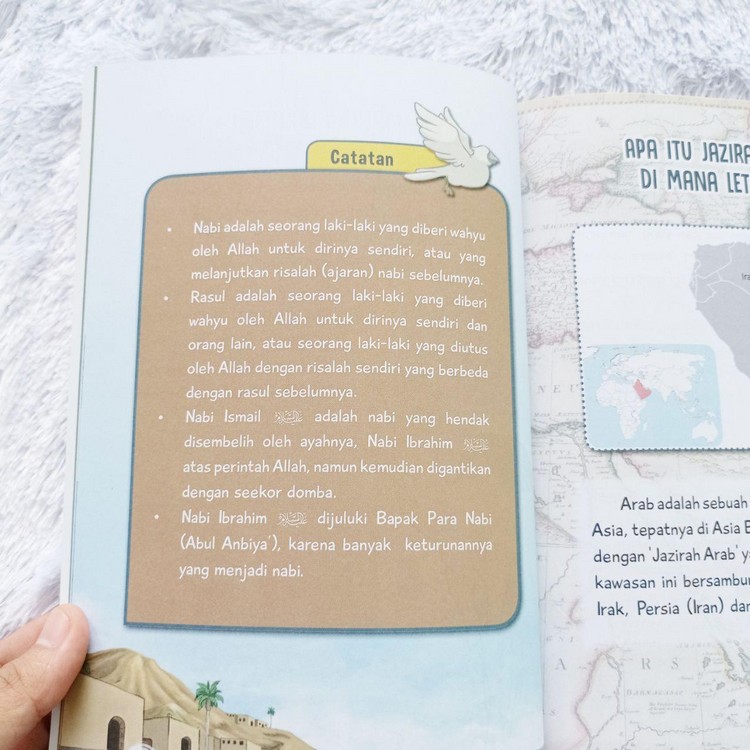 Catatan
• Nabi adalah seorang laki-laki yang diberi wahyu
oleh Allah untuk dirinya sendiri, atau yang
melanjutkan risalah (ajaran) nabi sebelumnya.
• Rasul adalah seorang laki-laki yang diberi
wahyu oleh Allah untuk dirinya sendiri dan
orang lain, atau seorang laki-laki yang diutus
oleh Allah dengan risalah sendiri yang berbeda
dengan rasul sebelumnya.
• Nabi Ismail adalah nabi yang hendak
disembelih oleh ayahnya, Nabi Ibrahim
atas perintah Allah, namun kemudian digantikan
dengan seekor domba.
• Nabi Ibrahim dijuluki Bapak Para Nabi
(Abul Anbiya'), karena banyak keturunannya
yang menjadi nabi.
APA ITU JAZIRA
DI MANA LET
Ira
Arab adalah sebuah
Asia, tepatnya di Asia B
dengan 'Jazirah Arab' y
kawasan ini bersambu
Irak, Persia (Iran) dar